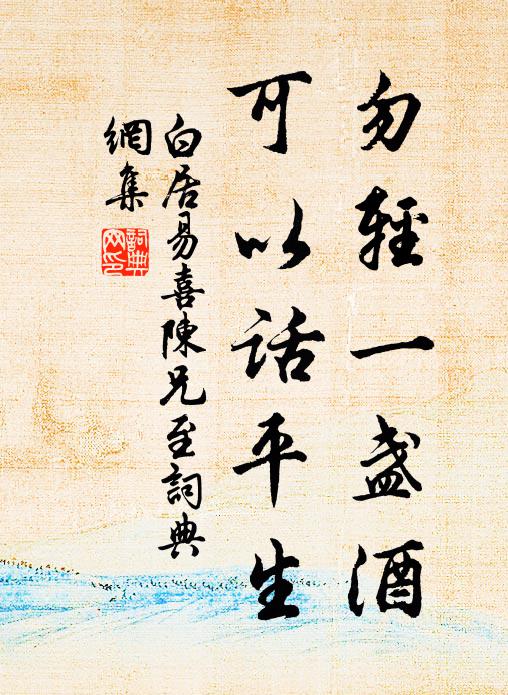 勿輕一盏酒
可以話平生
白居易喜陳兄至詞典
網集
詞典
网印